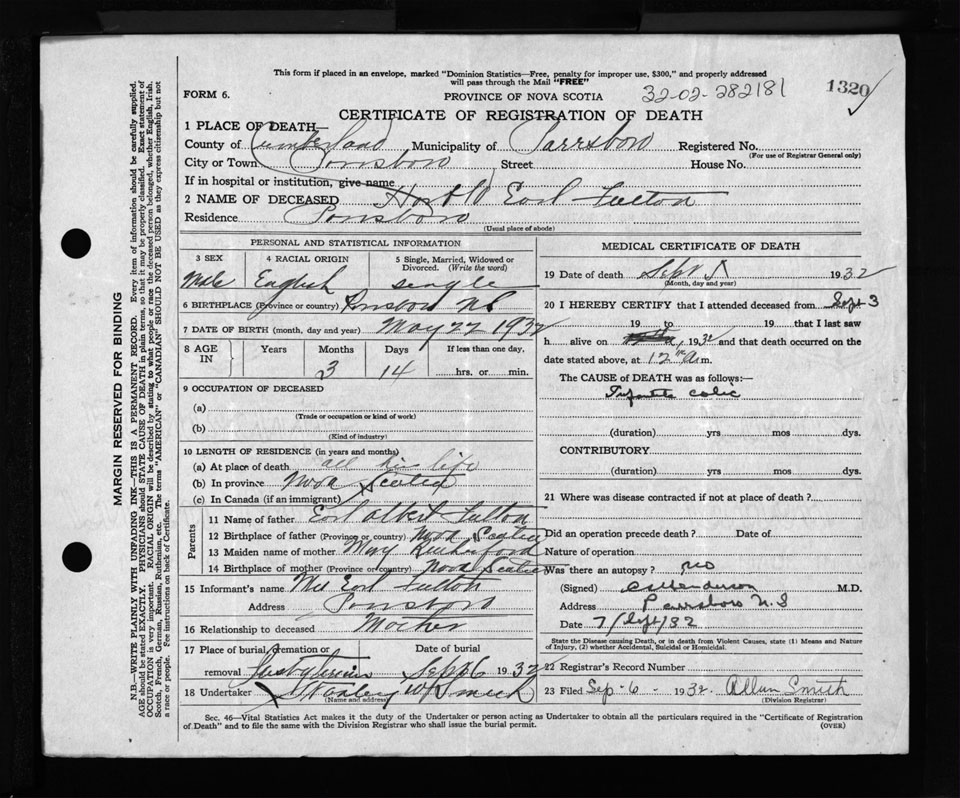 This form if placed in an envelope, marked "Dominion Statistics—Free, penalty for improper use, $300," and properly addressed
will pass through the Mail "FREE"
FORM 6.
PROVINCE OF NOVA SCOTIA
32-02-282181
1320
CERTIFICATE OF REGISTRATION OF DEATH
1 PLACE OF DEATH—
County of Cumberland Municipality of Parrsboro Registered No.
(For use of Registrar General only)
City or Town Parrsboro Street House No.
If in hospital or institution, give name
2 NAME OF DECEASED Harold Earl Fulton
Residence Parrsboro
(Usual place of abode)
PERSONAL AND STATISTICAL INFORMATION
3 SEX
Male
4 RACIAL ORIGIN
English
5 Single, Married, Widowed or
Divorced. (Write the word)
single
6 BIRTHPLACE (Province or country) Parrsboro NS
7 DATE OF BIRTH (month, day and year) May 22 1932
8 AGE IN
Years Months Days If less than one day,
3 14 hrs. or min.
9 OCCUPATION OF DECEASED
(a)
(Trade or occupation or kind of work)
(b)
(Kind of industry)
10 LENGTH OF RESIDENCE (in years and months)
(a) At place of death all his life
(b) In province Nova Scotia
(c) In Canada (if an immigrant)
Parents
11 Name of father Earl Albert Fulton
12 Birthplace of father (Province or country) Nova Scotia
13 Maiden name of mother May
14 Birthplace of mother (Province or country) Nova Scotia
15 Informant's name Mrs Earl Fulton
Address Parrsboro
16 Relationship to deceased Mother
17 Place of burial, cremation or Date of burial
removal Sept 6 1932
18 Undertaker
(Name and address)
MEDICAL CERTIFICATE OF DEATH
19 Date of death Sept 5 1932
(Month, day and year)
20 I HEREBY CERTIFY that I attended deceased from Sept 3
19 to 19 that I last saw
h alive on , 1932 and that death occurred on the
date stated above, at 12 m.
The CAUSE of DEATH was as follows:—
colic
(duration) yrs mos dys.
CONTRIBUTORY
(duration) yrs mos dys.
21 Where was disease contracted if not at place of death?
Did an operation precede death? Date of
Nature of operation
Was there an autopsy? no
(Signed) M.D.
Address Parrsboro N.S
Date 7/Sept/32
State the Disease causing Death, or in death from Violent Causes, state (1) Means and Nature
of Injury, (2) whether Accidental, Suicidal or Homicidal.
22 Registrar's Record Number
23 Filed Sep-6- 1932 Smith
(Division Registrar)
Sec. 46—Vital Statistics Act makes it the duty of the Undertaker or person acting as Undertaker to obtain all the particulars required in the "Certificate of Registration
of Death" and to file the same with the Division Registrar who shall issue the burial permit.
(OVER)
MARGIN RESERVED FOR BINDING
N.B.—WRITE PLAINLY WITH UNFADING INK—THIS IS A PERMANENT RECORD. Every item of information should be carefully supplied.
AGE should be stated EXACTLY. PHYSICIANS should STATE CAUSE OF DEATH in plain terms, so that it may be properly classified. Exact statement of
OCCUPATION is very important. RACIAL ORIGIN will be described by stating to what people or race the deceased person belonged, whether English, Irish,
Scotch, French, German, Russian, Ruthenian, etc. The terms "AMERICAN" or "CANADIAN" SHOULD NOT BE USED as they express citizenship but not
a race or people. See instructions on back of Certificate.